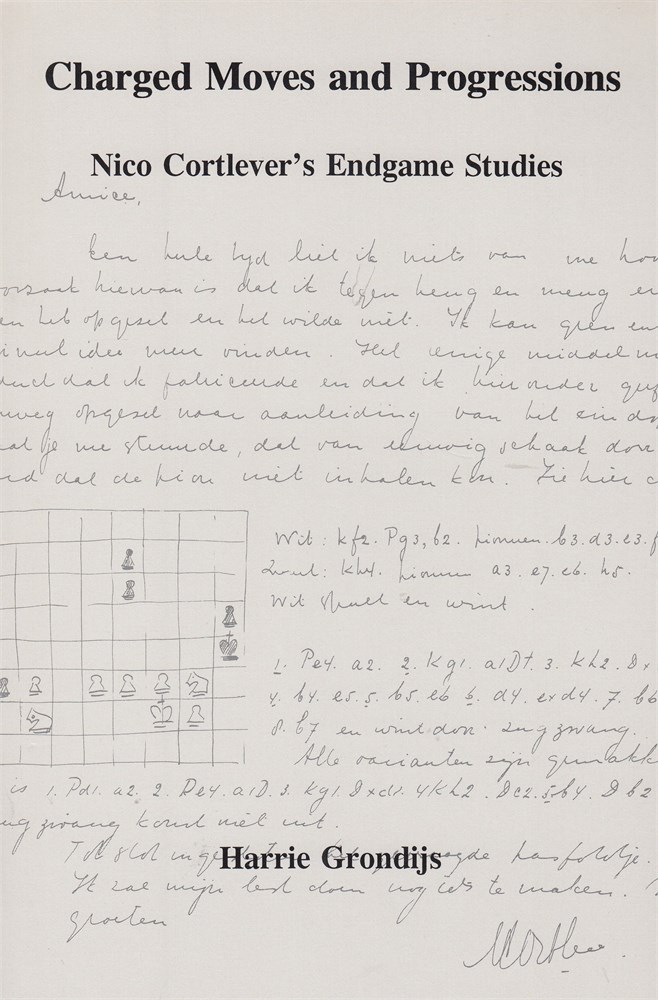 Charged Moves and Progressions
Nico Cortlever's Endgame Studies
Amice,
Een hele tijd liet ik niets van me hor
oorzaak hiervan is dat ik tegen heug en meug
en heb opgezet en het wilde niet. Ik kan geen en
idee meer vinden. Het enige middel
dat ik fabriceerde en dat ik hieronder
opgezet naar aanleiding van het
je me stuurde, dat van eeuwig schaak door
dat de pion niet inhalen kon. Zie hier
Wit: Kf2. Pg3, b2. pionnen. b3. d3. e3. f
Zwart: Kh4. pionnen a3. e7. e6. h5.
Wit speelt en wint.
1. Pe4. a2. 2. Kg1. a1D†. 3. Kh2. Dx
4. b4. e5. 5. b5. e6 6. d4. exd4. 7. b6
8. b7 en wint door zugzwang.
Alle varianten zijn
is 1. Pd1. a2. 2. Pe4. a1D. 3. Kg1. Dxd1. 4 Kh2. Dc2. 5. b4. Db2
zwang komt niet uit.
Tot slot pasfototje.
Harrie Grondijs
Ik zal mijn best doen nog iets te maken.
groeten
NCortlever.